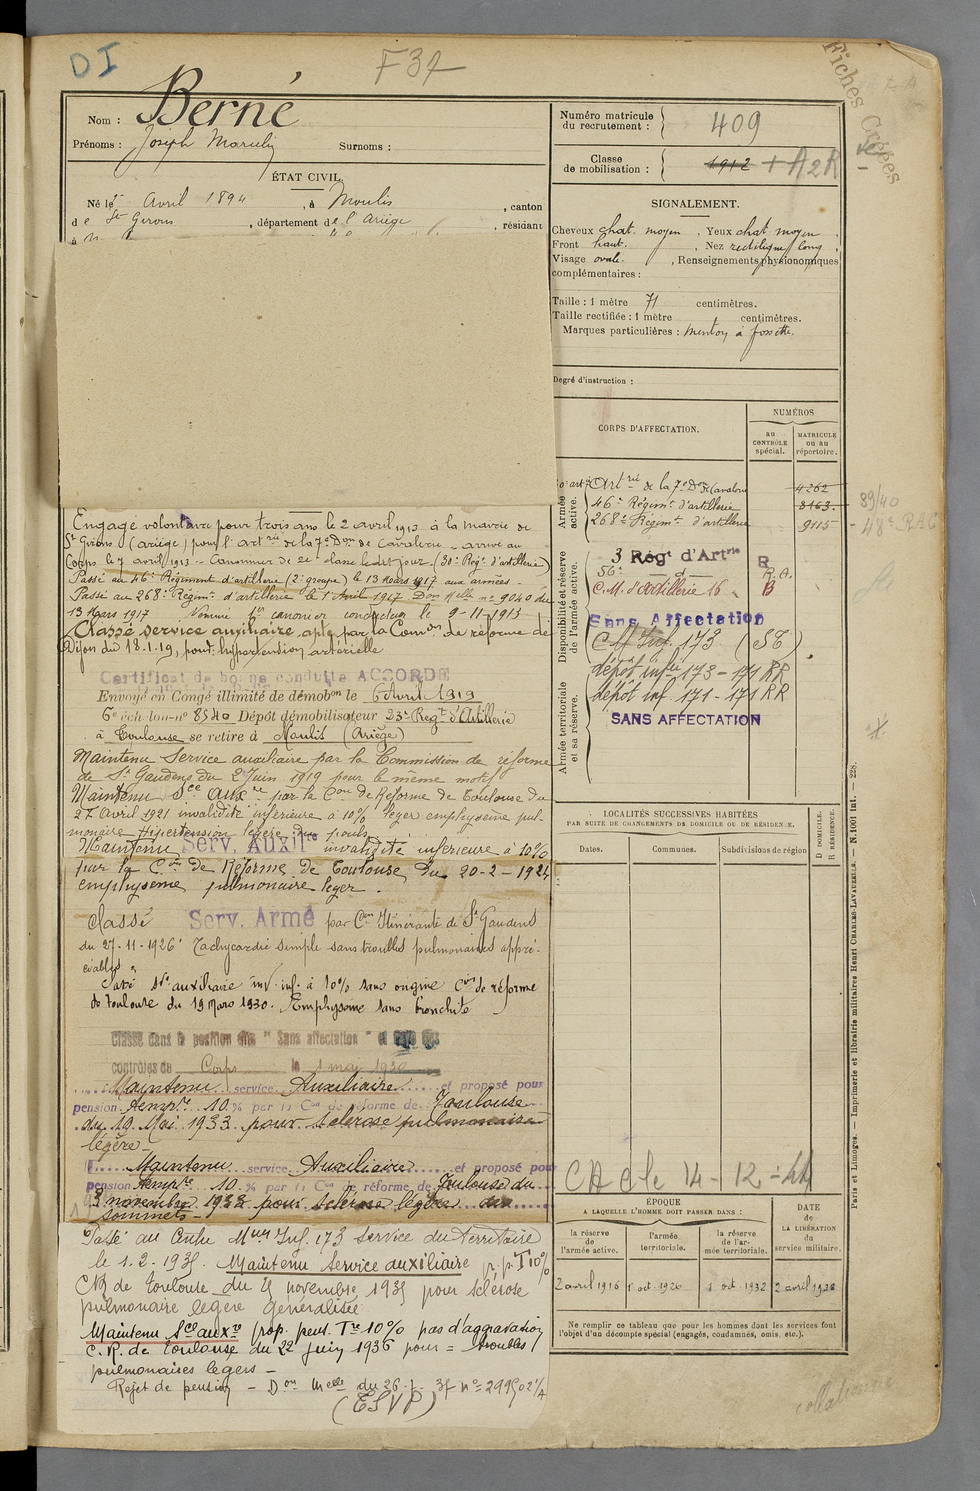 DI
F37
Fiches Créées
Nom : Berné
Prénoms : Joseph Marcelin Surnoms :
ÉTAT CIVIL.
Né le 5 Avril 1894, à Moulis, canton
de St Girons, département de l'Ariège, résidant
à
Engagé volontaire pour trois ans le 2 avril 1913 à la mairie de
St Girons (ariège) pour l'artrie de la 7e Don de Cavalerie - arrivé au
Corps le 7 avril 1913 - Canonnier de 2e classe le dit jour. (30e Régt d'artillerie)
Passé au 46e Régiment d'artillerie (2e groupe) le 13 Mars 1917 aux armées -
Passé au 268e Régimt d'artillerie le 1er Avril 1917 Don Melle no 9040 du
13 Mars 1917 Nommé 1er canonier conducteur le 9-11-1913
Classé service auxiliaire, apte par la Comon de réforme de
Dijon du 18.1.19, pour: hypertension artérielle
Certificat de bonne conduite ACCORDÉ
Envoyé en Congé illimité de démobon le 6 Avril 1919
6e échelon no 8540 Dépôt démobilisateur 23e Regt d'Artillerie
à Toulouse se retire à Moulis (Ariège)
Maintenu Service auxiliaire par la Commission de réforme
de St Gaudens du 2 Juin 1919 pour le même motif
Maintenu Sce auxre par la Con de Réforme de Toulouse du
27 Avril 1921 invalidité inférieure à 10% léger emphysème pul-
monaire Hipertension légère du pouls
Maintenu Serv. Auxilre invalidité inférieure à 10%
par la Con de Réforme de Toulouse du 20-2-1924
emphyseme pulmonaire leger.
Classé Serv. Armé par Con Itinérante de St Gaudens
du 27-11-1926 Tachycardie simple sans troubles pulmonaires appré-
ciables.
Passé sve auxiliaire inv. inf. à 10% sans origine Con de réforme
de Toulouse du 19 Mars 1930. Emphysème sans bronchite
Classé dans la position dite "Sans affectation" et
contrôles de Corps le 1 mai 1930
Maintenu service Auxiliaire et proposé pour
pension Tempre 10 % par la Con de réforme de Toulouse
du 19 Mai 1933 pour sclérose pulmonaire
légère -
Maintenu service Auxiliaire et proposé pour
pension Tempre 10 % par la Con de réforme de Toulouse du
novembre 1933 pour sclérose légère des
sommets -
Passé au Centre Meur Inf. 173 service du territoire
le 1.2-1935. Maintenu Service auxiliaire p.p. T 10%
CR de Toulouse du 25 novembre 1935 pour sclérose
pulmonaire légère généralisée
Maintenu Sce auxre prop. pens. Tre 10% pas d'aggravation
C.R. de Toulouse du 22 juin 1936 pour = troubles
pulmonaires légers -
Rejet de pension - Don Melle du 26-
(ESVP)
Numéro matricule du recrutement : 409
Classe de mobilisation : 1912 + A2R
SIGNALEMENT.
Cheveux chat. moyen, Yeux chat moyen,
Front haut., Nez rectiligne long,
Visage ovale., Renseignements physionomiques
complémentaires :
Taille : 1 mètre 71 centimètres.
Taille rectifiée : 1 mètre centimètres.
Marques particulières : menton à fossette.
Degré d'instruction :
CORPS D'AFFECTATION.
NUMÉROS
au CONTRÔLE spécial.
MATRICULE ou au répertoire.
Armée active.
Artrie de la 7e Don de Cavalerie 4262
46e Régimt d'artillerie 8163
268e Régimt d'artillerie 9115
39/40
48e RAC
Disponibilité et réserve de l'armée active.
3 Régt d'Artrie R
56e d R.A.
C.M. d'Artillerie 16 B
Sans Affectation
C M Inf. 173 (ST)
dépôt infrie 173 - 171 RR
dépôt inf 171 - 171 RR
SANS AFFECTATION
Armée territoriale et sa réserve.
LOCALITÉS SUCCESSIVES HABITÉES
PAR SUITE DE CHANGEMENTS DE DOMICILE OU DE RÉSIDENCE.
Dates. Communes. Subdivisions de région
D DOMICILE.
R RÉSIDENCE.
ÉPOQUE
A LAQUELLE L'HOMME DOIT PASSER DANS :
la réserve de l'armée active.
l'armée territoriale.
la réserve de l'armée territoriale.
DATE de LA LIBÉRATION du service militaire.
2 avril 1916 1 oct. 1926 1 oct. 1932 2 avril 1938
Ne remplir ce tableau que pour les hommes dont les services font
l'objet d'un décompte spécial (engagés, condamnés, omis, etc.).
Paris et Limoges. — Imprimerie et librairie militaires Henri CHARLES-LAVAUZELLE. — N. 1001 int. — 228.